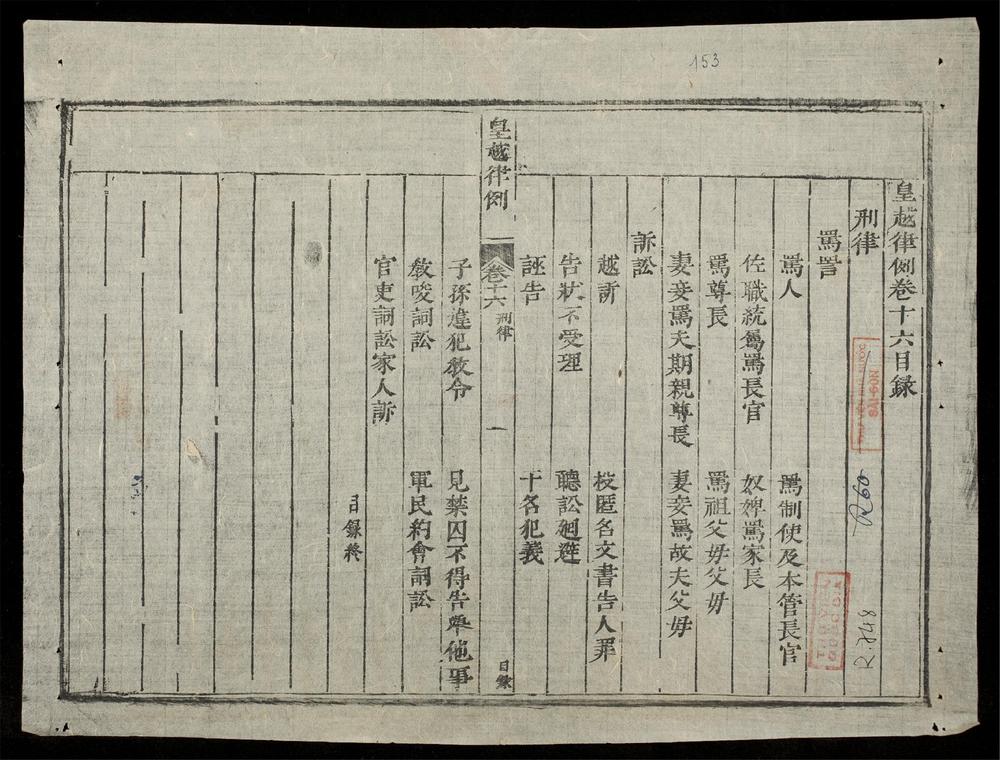 153
皇越律例卷十六目録
刑律
罵詈
罵人
罵制使及本管長官
佐職統屬罵長官
奴婢罵家長
罵尊長
罵祖父母父母
妻妾罵夫期親尊長
妻妾罵故夫父母
訴訟
越訴
投匿名文書告人罪
告狀不受理
聽訟廻避
誣告
干名犯義
皇越律例
卷十六
刑律
一
目錄
子孫違犯教令
見禁囚不得告舉他事
教唆詞訟
軍民約會詞訟
官吏詞訟家人訴
目錄終
SAI-GON